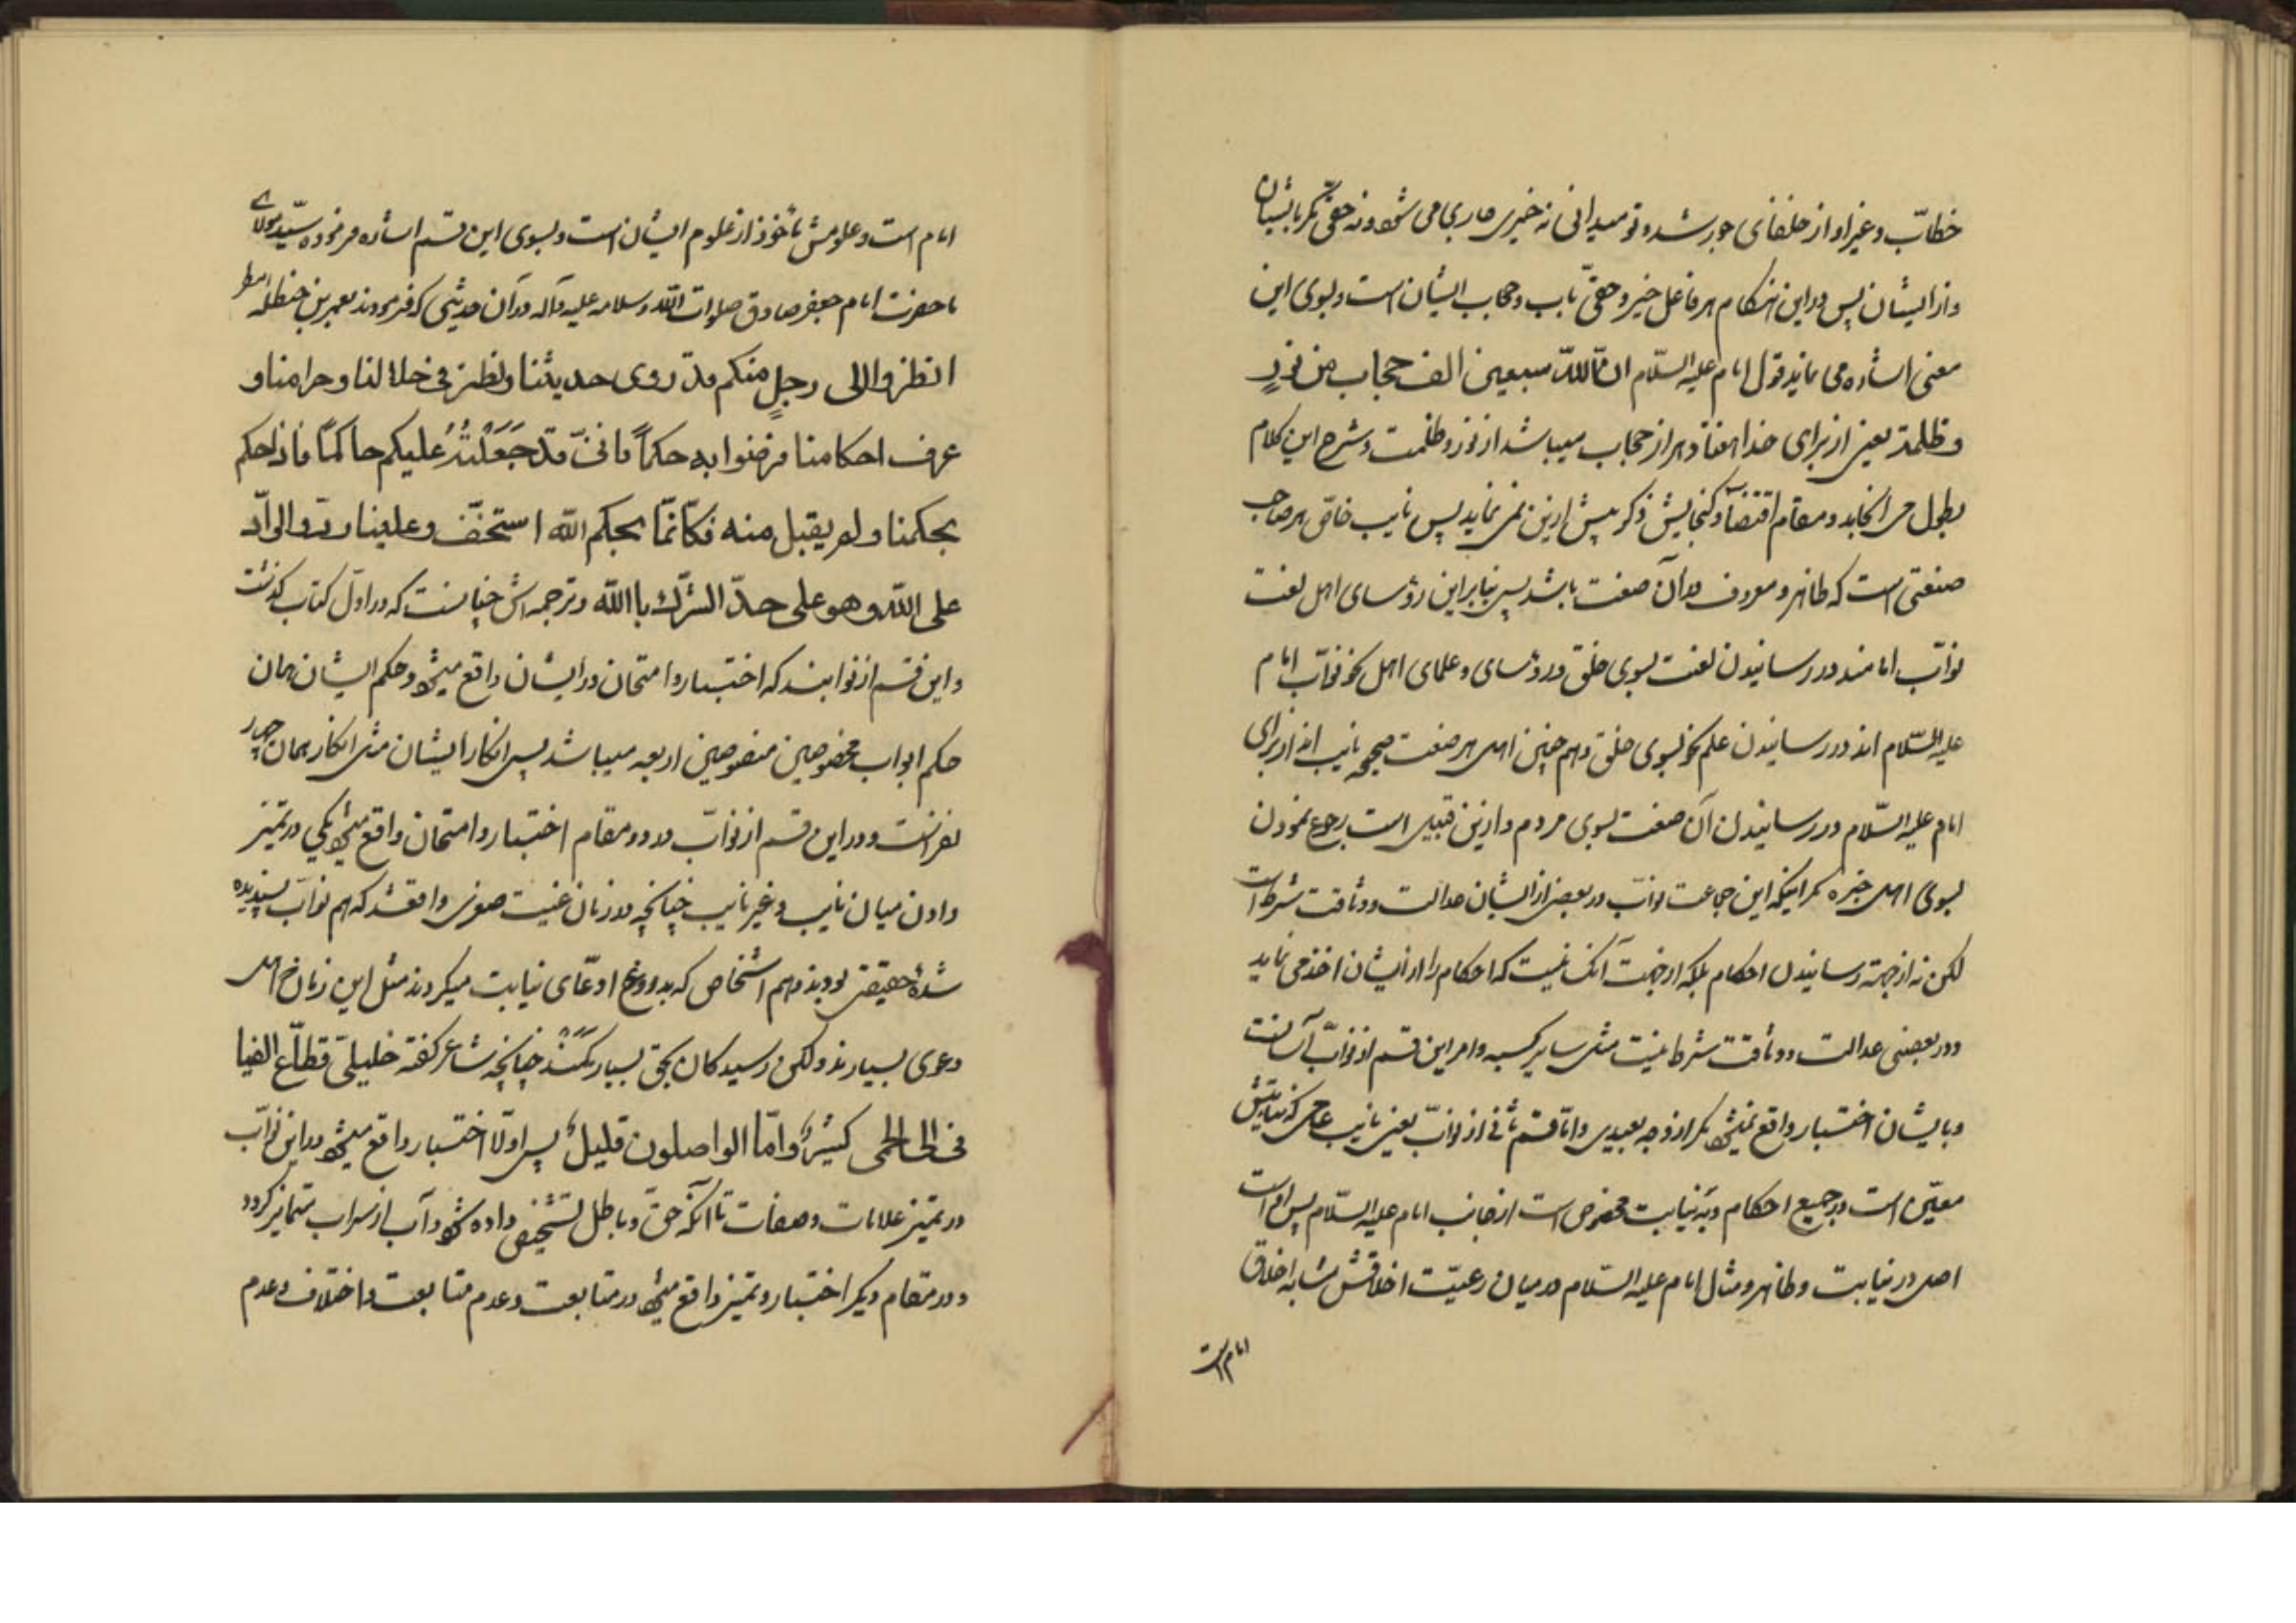 خطاب و غیر او از خلفای جور شد و تو میدانی نه خیری جاری می شود و نه حقی مگر بایشان
و از ایشان پس در این هنکام هر فاعل خیر و حقی باب و حجاب ایشان است و بسوی این
معنی اشاره می نماید قول امام علیه السّلام انّ للّٰه سبعین الف حجاب من نورٍ
و ظلمة یعنی از برای خدا هفتاد هزار حجاب میباشد از نور و ظلمت و شرح این کلام
بطول می انجامد و مقام اقتضآء و کنجایش ذکر بیش ازین نمی نماید پس نایب خاصّ هر صاحب
صنعتی است که ظاهر و معروف در آن صنعت باشد پس بنابراین رؤسای اهل لغت
نوّاب امامند در رسانیدن لغت بسوی خلق و رؤسای و علمای اهل نحو نوّاب امام
علیه السّلام اند در رسانیدن علم نحو بسوی خلق و هم چنین اهل هر صنعت صحیحه نایب اند از برای
امام علیه السّلام در رسانیدن آن صنعت بسوی مردم و ازین قبیل است رجوع نمودن
بسوی اهل خبره مگر اینکه این جماعت نوّاب در بعضی از ایشان عدالت و وثاقت شرط است
لکن نه از جهة رسانیدن احکام بلکه از جهت آنکه نیست که احکام را از ایشان اخذ می نماید
و در بعضی عدالت و وثاقت شرط نیست مثل سایر کسبه و امر این قسم از نوّاب آسانست
و بایشان اختبار واقع نمیشود مگر از وجه بعیدی و امّا قسم ثانی از نوّاب یعنی نایب عامی که نیابتش
معیّن است در جمیع احکام و به نیابت مخصوص است از جانب امام علیه السّلام پس او است
اصل در نیابت و ظاهر و مثال امام علیه السّلام در میان رعیّت اخلاقش مشابه اخلاق
امام است
امام است و علومش مأخوذ از علوم ایشان است و بسوی این قسم اشاره فرموده سیّد و مولای
ما حضرت امام جعفر صادق صلوات اللّه و سلامه علیه و آله در آن حدیثی که فرمودند بعمر بن حنظله
انظروا الی رجلٍ منکم قد روی حدیثنا و نظر فی حلالنا و حرامنا و
عرف احکامنا فرضوا به حکماً فانّی قد جَعَلْتُهُ علیکم حاکماً فاذا حکم
بحکمنا و لم یقبل منه فکانّما بحکم اللّه استخفّ و علینا ردّ و الرّادّ
علی اللّه و هو علی حدّ الشّرك باللّه و ترجمه اش چنانست که در اوّل کتاب کذشت
و این قسم از نوابند که اختبار و امتحان در ایشان واقع میشود و حکم ایشان همان
حکم ابواب مخصوصین منصوصین اربعه میباشد پس انکار ایشان مثل انکار همان چهار
نفر است و در این قسم از نوّاب در دو مقام اختبار و امتحان واقع میشود یکی در تمیز
دادن میان نایب و غیر نایب چنانچه در زمان غیبت صغری واقع شد که هم نوّاب پسندیده
شدهٔ حقیقی بودند و هم اشخاص که بدروغ ادعّای نیابت میکردند مثل این زمان اهل
دعوی بسیارند ولکن رسید کان بحق بسیار کمند چنانچه شاعر کفته خلیلیّ قطّاع الفیا
فی الی الحمی کثیرٌ و امّا الواصلون قلیلُ پس اولاً اختبار واقع میشود در این نوّاب
در تمیز علامات و صفات تا آنکه حقّ و باطل تشخیص داده شود و آب از سراب متمایز کردد
و در مقام دیکر اختبار و تمیز واقع میشود در متابعت و عدم متابعت و اختلاف و عدم